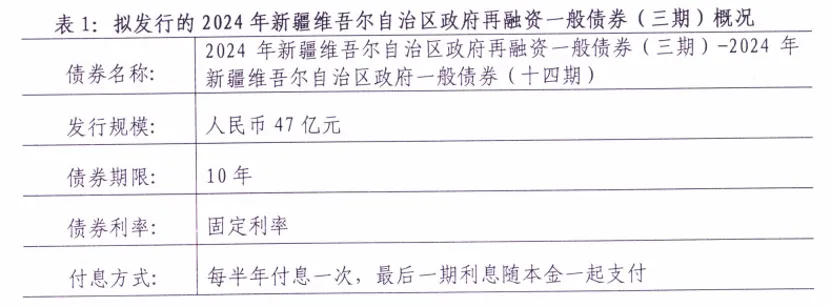 表 1：拟发行的 2024 年新疆维吾尔自治区政府再融资一般债券（三期）概况
债券名称：
2024 年新疆维吾尔自治区政府再融资一般债券（三期）-2024 年
新疆维吾尔自治区政府一般债券（十四期）
发行规模： 人民币 47 亿元
债券期限： 10 年
债券利率： 固定利率
付息方式： 每半年付息一次，最后一期利息随本金一起支付